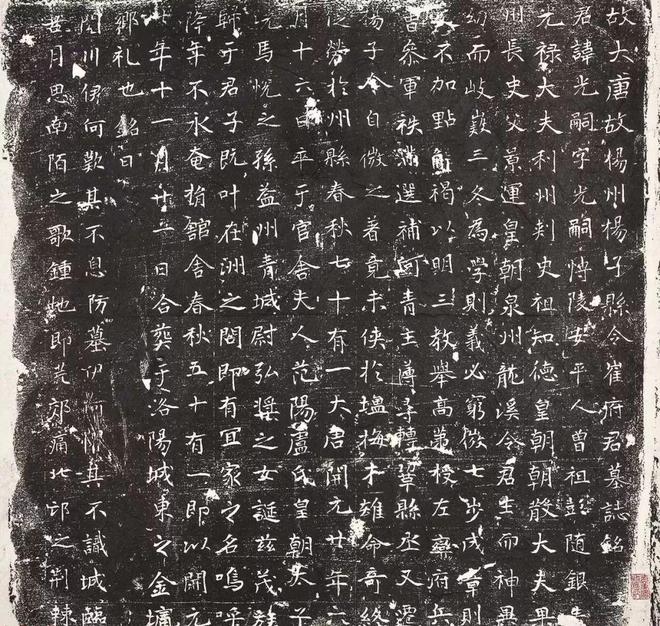 故大唐故楊州楊子縣令崔府君墓誌銘
君諱光嗣字光嗣博陵安平人曾祖彭随銀青
光祿大夫利州刺史祖知德皇朝朝散大夫果
州長史父景運皇朝泉州龍溪令君生而神異
幼而岐嶷三冬為學則義必窮微七步成章則
文不加點解褐以明三教舉高第授左衛府兵
曹參軍秩滿選補青主薄尋轉鞏縣丞又遷
楊子令自微之著竟未俠於塩梅才雄命奇終
從勞於州縣春秋七十有一大唐開元廿年六
月十六日卒于官舍夫人范陽盧氏皇朝太子
洗馬悅之孫益州青城尉弘獎之女誕茲茂族
歸于君子既叶在洲之閤即有宜家之名嗚呼
降年不永奄捐館舍春秋五十有一即以開元
廿年十一月廿日合葬于洛陽城東之金墉
鄉礼也銘曰
閱川伊何歎其不息防墓何其不識城臨
月思南陌之歌鍾地即芒郊痛北邙之荆棘